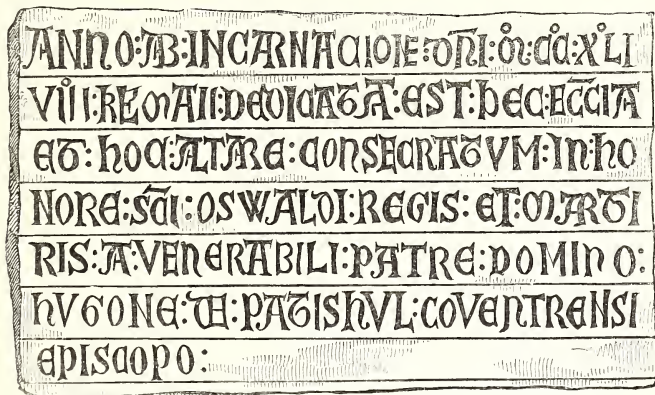 ANNO:AB:INCARNACIOIE:DNI:M:CC:XLI
VIII:KL MAII:DEDICATA:EST:HEC:ECCIA
ET:HOC:ALTARE:CONSECRATVM:IN:HO
NORE:SCI:OSWALDI:REGIS:ET:MARTI
RIS:A:VENERABILI:PATRE:DOMINO:
HVGONE:DE:PATISHVL:COVENTRENSI
EPISCOPO: